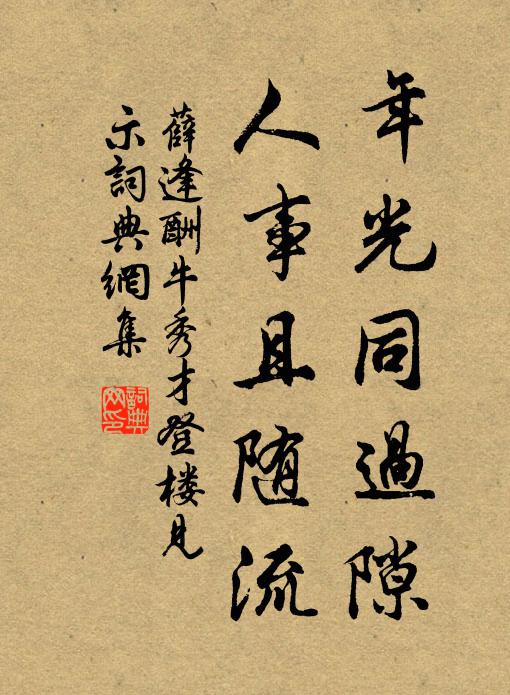 年光同過隙
人事且随流
薛逢酬牛秀才登楼見
示詞典網集
詞典
网印